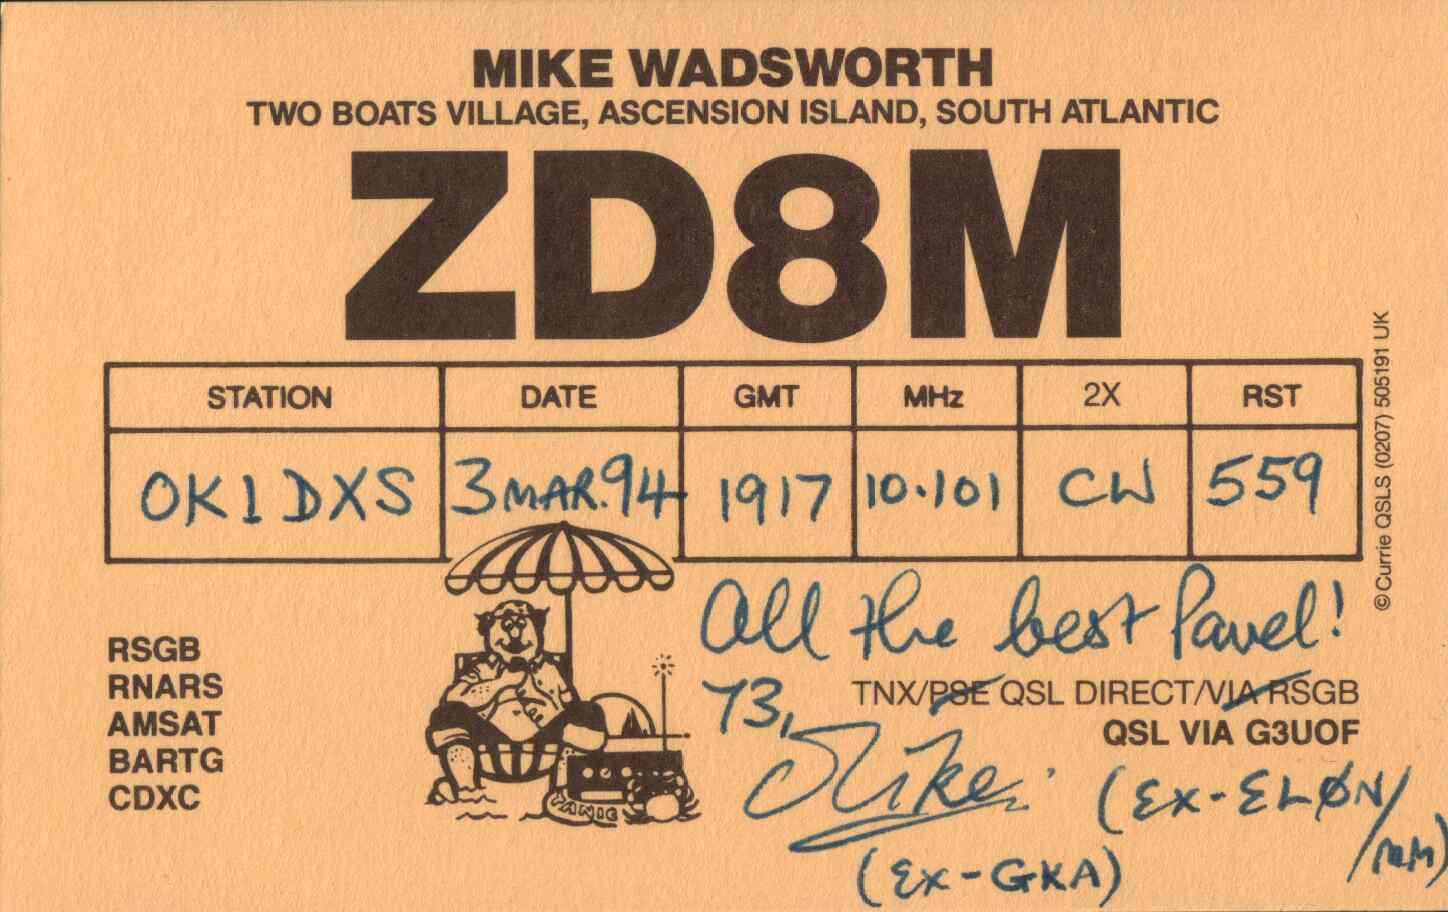 MIKE WADSWORTH
TWO BOATS VILLAGE, ASCENSION ISLAND, SOUTH ATLANTIC
ZD8M
STATION DATE GMT MHz 2X RST
OK1DXS 3 MAR. 94 1917 10.101 CW 559
© Currie QSLS (0207) 505191 UK
All the best Pavel!
RSGB
RNARS
AMSAT
BARTG
CDXC
73,
TNX/PSE QSL DIRECT/VIA RSGB
QSL VIA G3UOF
Mike
(EX-ELØN/MM)
(EX-GKA)